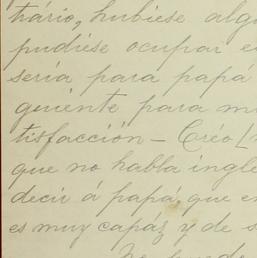 trário, hubiese alg
pudiése ocupar e
sería para papá
guiente para m
tisfacción – Créo [
que no habla ingle
decir á papá, que e
es muy capáz y de s